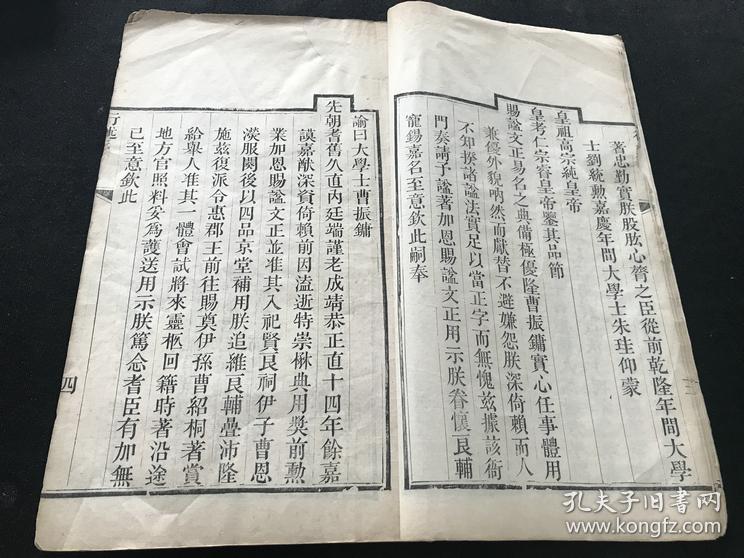 著忠勤實朕股肱心膂之臣從前乾隆年間大學
士劉統勲嘉慶年間大學士朱珪仰蒙
皇祖高宗純皇帝
皇考仁宗睿皇帝鑒其品節
賜諡文正易名之典備極優隆曹振鏞實心任事體用
兼優外貌吶然而獻替不避嫌怨朕深倚賴而人
不知揆諸諡法實足以當正字而無愧茲據該衙
門奏請予諡著加恩賜諡文正用示朕眷懷良輔
寵錫嘉名至意欽此嗣奉
諭曰大學士曹振鏞
先朝耆舊久直內廷端謹老成靖恭正直十四年餘嘉
謨嘉猷深資倚賴前因溘逝特崇楙典用奬前勲
業加恩賜諡文正並准其入祀賢良祠伊子曹恩
濙服闋後以四品京堂補用朕追維良輔疊沛隆
施茲復派令惠郡王前往賜奠伊孫曹紹桐著賞
給舉人准其一體會試將來靈柩回籍時著沿途
地方官照料妥為護送用示朕篤念耆臣有加無
已至意欽此
四
孔夫子旧书网
www.kongfz.com